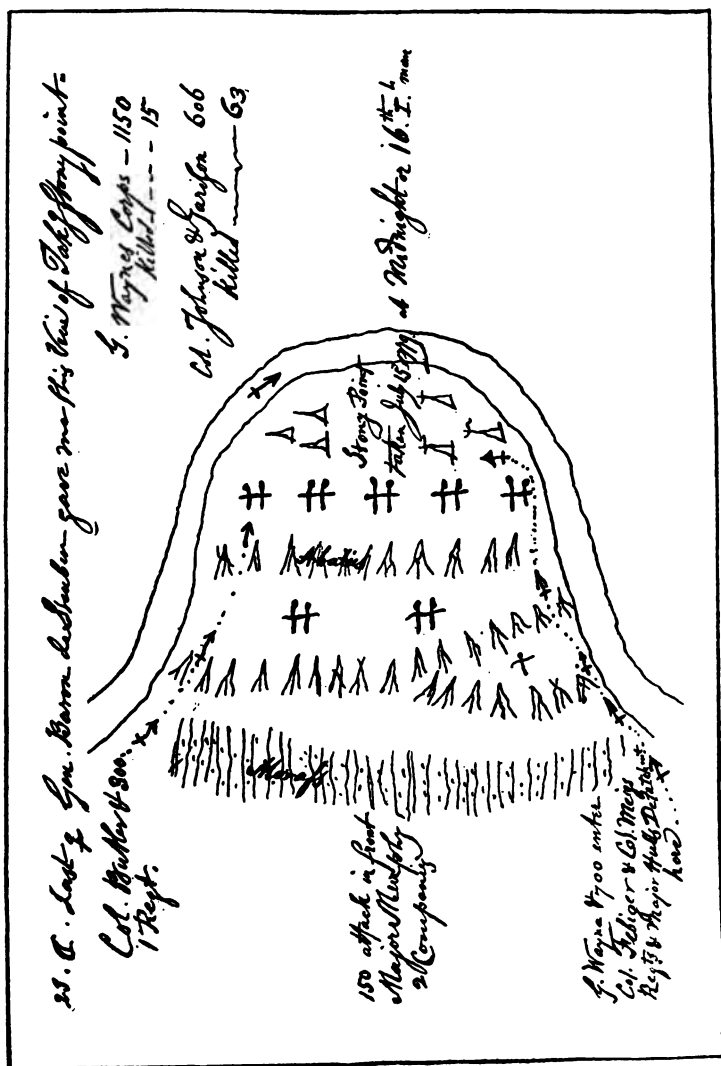 Gen. Baron de Steuben gave me this View of Takg Stony point.
G. Waynes Corps - 1150
Killed - - - 15
Col. Johnson & Garison 606
Killed 63
Stony Point
taken July 15 79. at Midnight or 16th L man
Abattis
Morass
Col. Butler & 300.
1 Regt.
150 attack in front
Majors Murphy
2 Companies
G. Wayne & 700 enter
Col. Febiger & Col. Meigs
Regts & Major Hulls Detatchmt.
here....